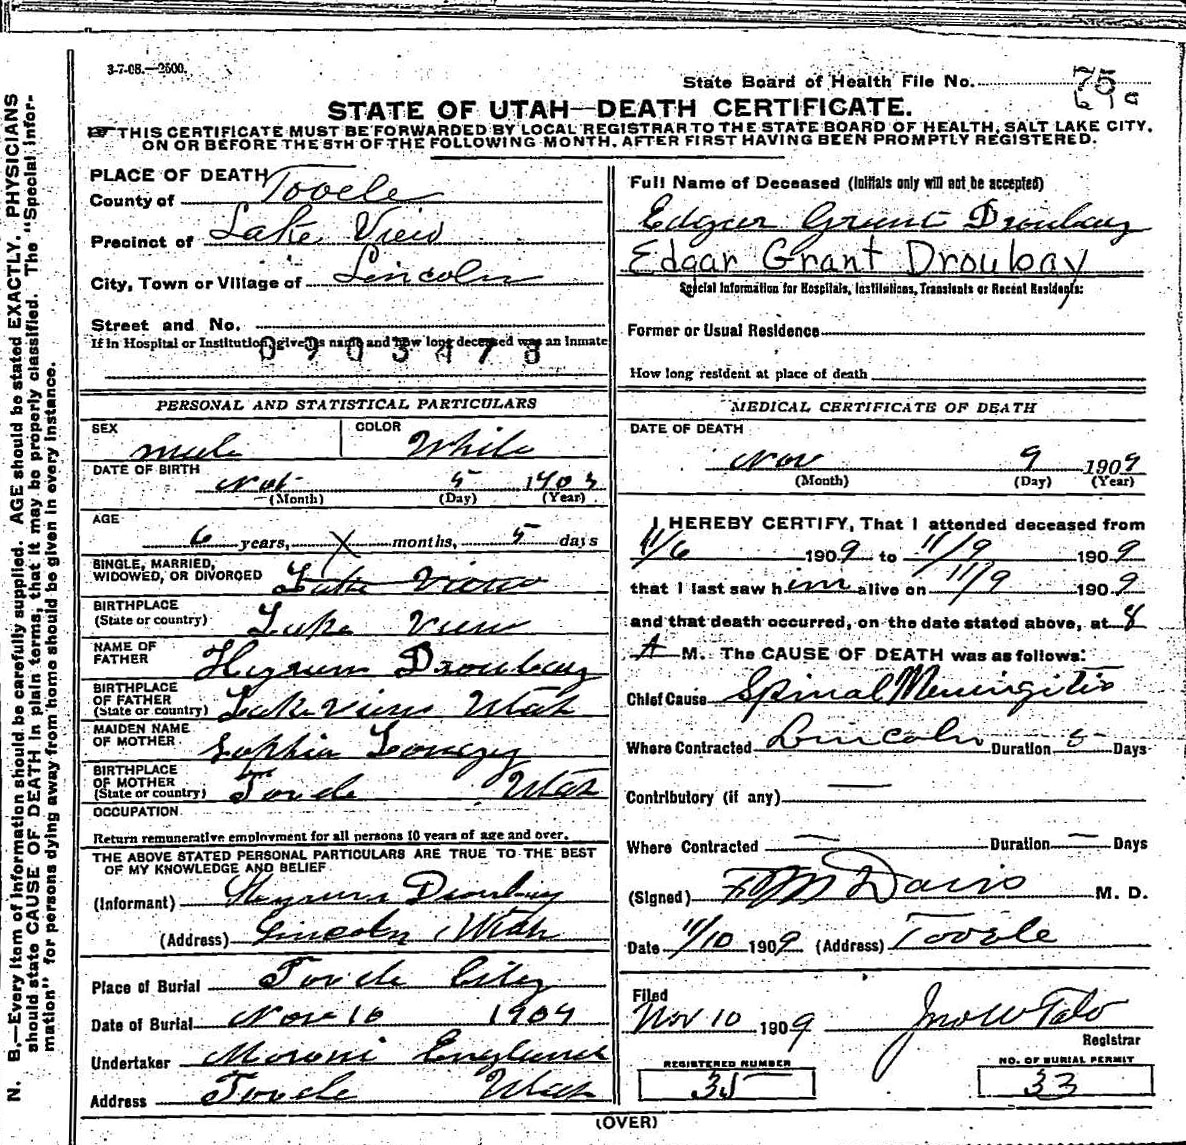 3-7-08.—2500.
State Board of Health File No. 75
STATE OF UTAH—DEATH CERTIFICATE.
THIS CERTIFICATE MUST BE FORWARDED BY LOCAL REGISTRAR TO THE STATE BOARD OF HEALTH, SALT LAKE CITY,
ON OR BEFORE THE 5TH OF THE FOLLOWING MONTH, AFTER FIRST HAVING BEEN PROMPTLY REGISTERED.
N. B.—Every item of information should be carefully supplied. AGE should be stated EXACTLY. PHYSICIANS
should state CAUSE OF DEATH in plain terms, that it may be properly classified. The "Special Infor-
mation" for persons dying away from home should be given in every instance.
PLACE OF DEATH
County of Tooele
Precinct of Lake View
City, Town or Village of Lincoln
Street and No.
If in Hospital or Institution, give its name and how long deceased was an Inmate
PERSONAL AND STATISTICAL PARTICULARS
SEX male COLOR White
DATE OF BIRTH
Nov 5 1903
(Month) (Day) (Year)
AGE
6 years, X months, 5 days
SINGLE, MARRIED,
WIDOWED, OR DIVORCED Lake View
BIRTHPLACE
(State or country) Lake View
NAME OF
FATHER Hyrum Droubay
BIRTHPLACE
OF FATHER
(State or country) Lake View Utah
MAIDEN NAME
OF MOTHER Sophia
BIRTHPLACE
OF MOTHER
(State or country) Tooele Utah
OCCUPATION
Return remunerative employment for all persons 10 years of age and over.
THE ABOVE STATED PERSONAL PARTICULARS ARE TRUE TO THE BEST
OF MY KNOWLEDGE AND BELIEF
(Informant) Hyrum Droubay
(Address) Lincoln, Utah
Place of Burial Tooele City
Date of Burial Nov 10 1909
Undertaker Moroni England
Address Tooele Utah
Full Name of Deceased (Initials only will not be accepted)
Edgar Grant Droubay
Edgar Grant Droubay
Special Information for Hospitals, Institutions, Transients or Recent Residents:
Former or Usual Residence
How long resident at place of death
MEDICAL CERTIFICATE OF DEATH
DATE OF DEATH
Nov 9 1909
(Month) (Day) (Year)
I HEREBY CERTIFY, That I attended deceased from
11/6 1909 to 11/9 1909
that I last saw him alive on 11/9 1909
and that death occurred, on the date stated above, at 8
A M. The CAUSE OF DEATH was as follows:
Chief Cause Spinal Meningitis
Where Contracted Lincoln Duration 5 Days
Contributory (if any) —
Where Contracted — Duration — Days
(Signed) F M Davis M. D.
Date 11/10 1909 (Address) Tooele
Filed
Nov 10 1909
Registrar
REGISTERED NUMBER
35
NO. OF BURIAL PERMIT
33
(OVER)